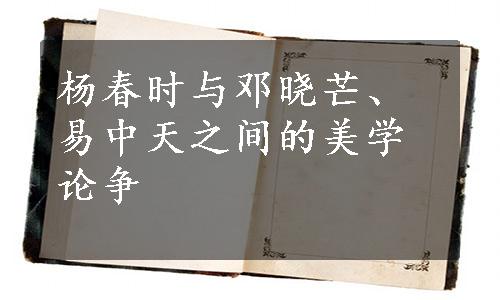 杨春时与邓晓芒、
易中天之间的美学
论争